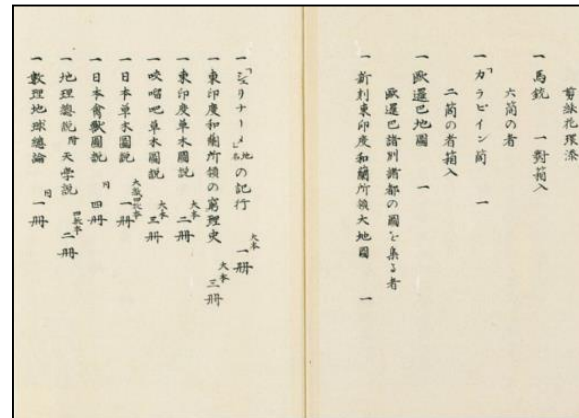 剪絨花環添
一 馬銃 一對箱入
六筒の者
一「カラビイン筒 一
二筒の者箱入
一 歐邏巴地圖 一
歐邏巴諸別諸都の圖を集る者
一 新刻東印度和蘭所領大地圖 一
一「シュリナーメ」地名の記行 大本 一冊
一 東印度和蘭所領の窮理史 大本 三冊
一 東印度草木圖説 大本 二冊
一 咬𠺕吧草木圖説 大本 三冊
一 日本草木圖説 大張四枚本 一冊
一 日本禽獸圖説 同 四冊
一 地理總説附天學説 四枚本 二冊
一 數理地球總論 同 一冊